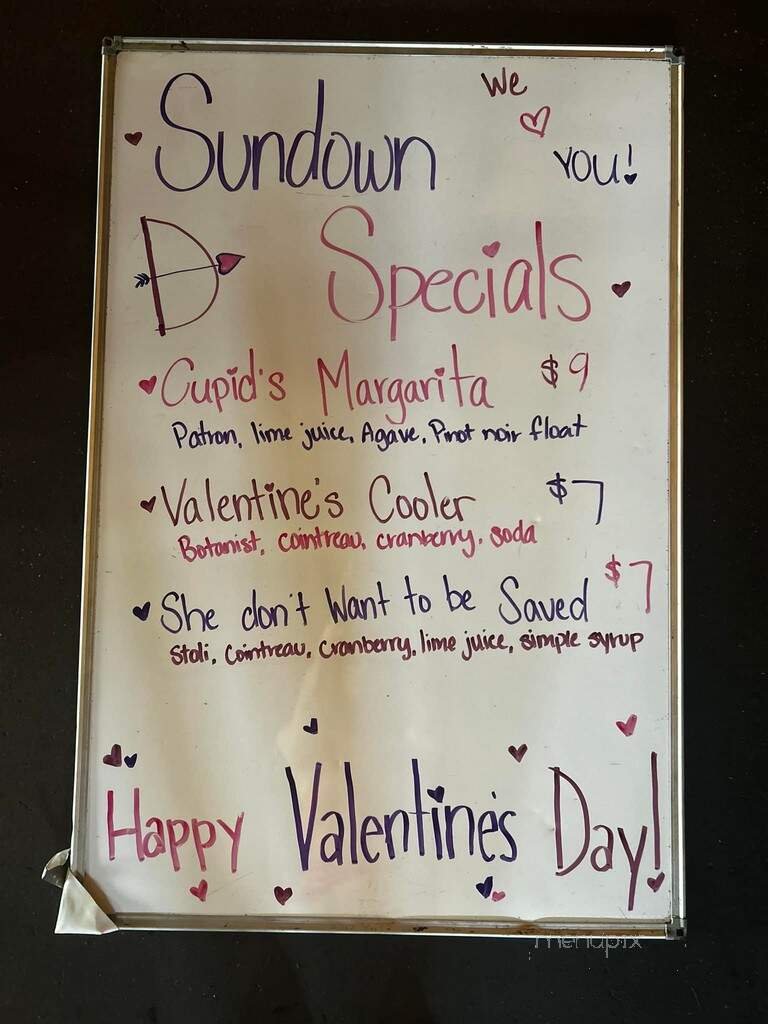 We
Sundown
YOU!
Specials
Cupid's Margarita $9
Patron, lime juice, Agave, Pinot noir float
Valentine's Cooler $7
Botanist, cointreau, cranberry, soda
She don't Want to be Saved $7
Stoli, Cointreau, Cranberry, lime juice, simple syrup
Happy Valentine's Day!
menupix